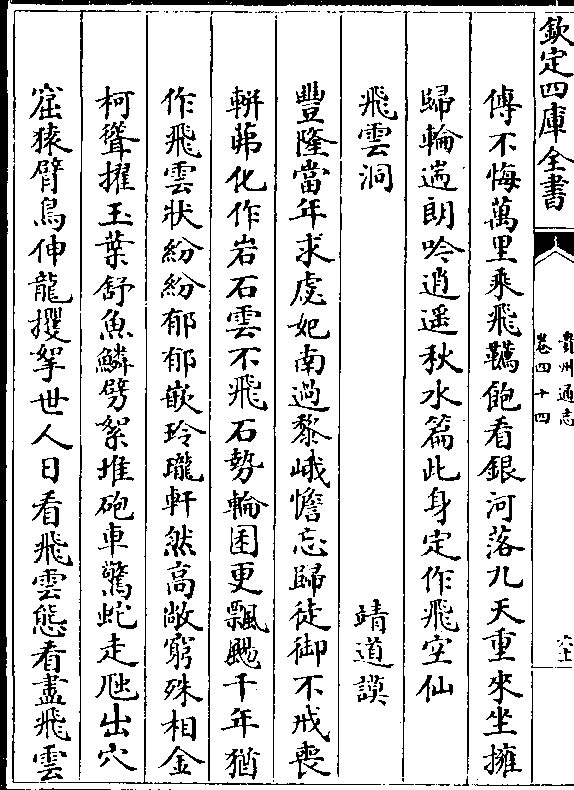 欽定四庫全書
貴州通志
卷四十四
傳不悔萬里乘飛韉飽看銀河落九天重來坐擁
歸輪遄朗吟逍遥秋水篇此身定作飛空仙
飛雲洞 靖道謨
豐隆當年求虙妃南過黎峨憺忘歸徒御不戒喪
輧茀化作岩石雲不飛石勢輪囷更飄颺千年猶
作飛雲狀紛紛郁郁嵌玲瓏軒然高敞窮殊相金
柯聳擢玉葉舒魚鱗劈絮堆砲車驚蛇走虺出穴
窟猿臂鳥伸龍攫拏世人日看飛雲態看盡飛雲